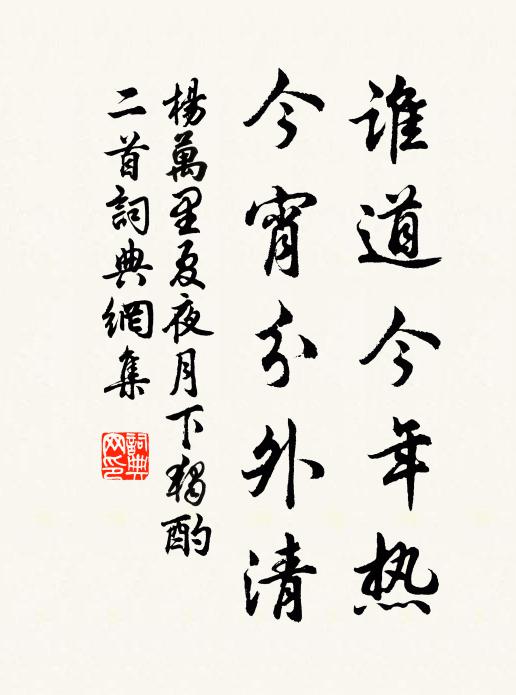 谁道今年热
今宵分外清
楊萬里夏夜月下独酌
二首詞典網集
詞典網印